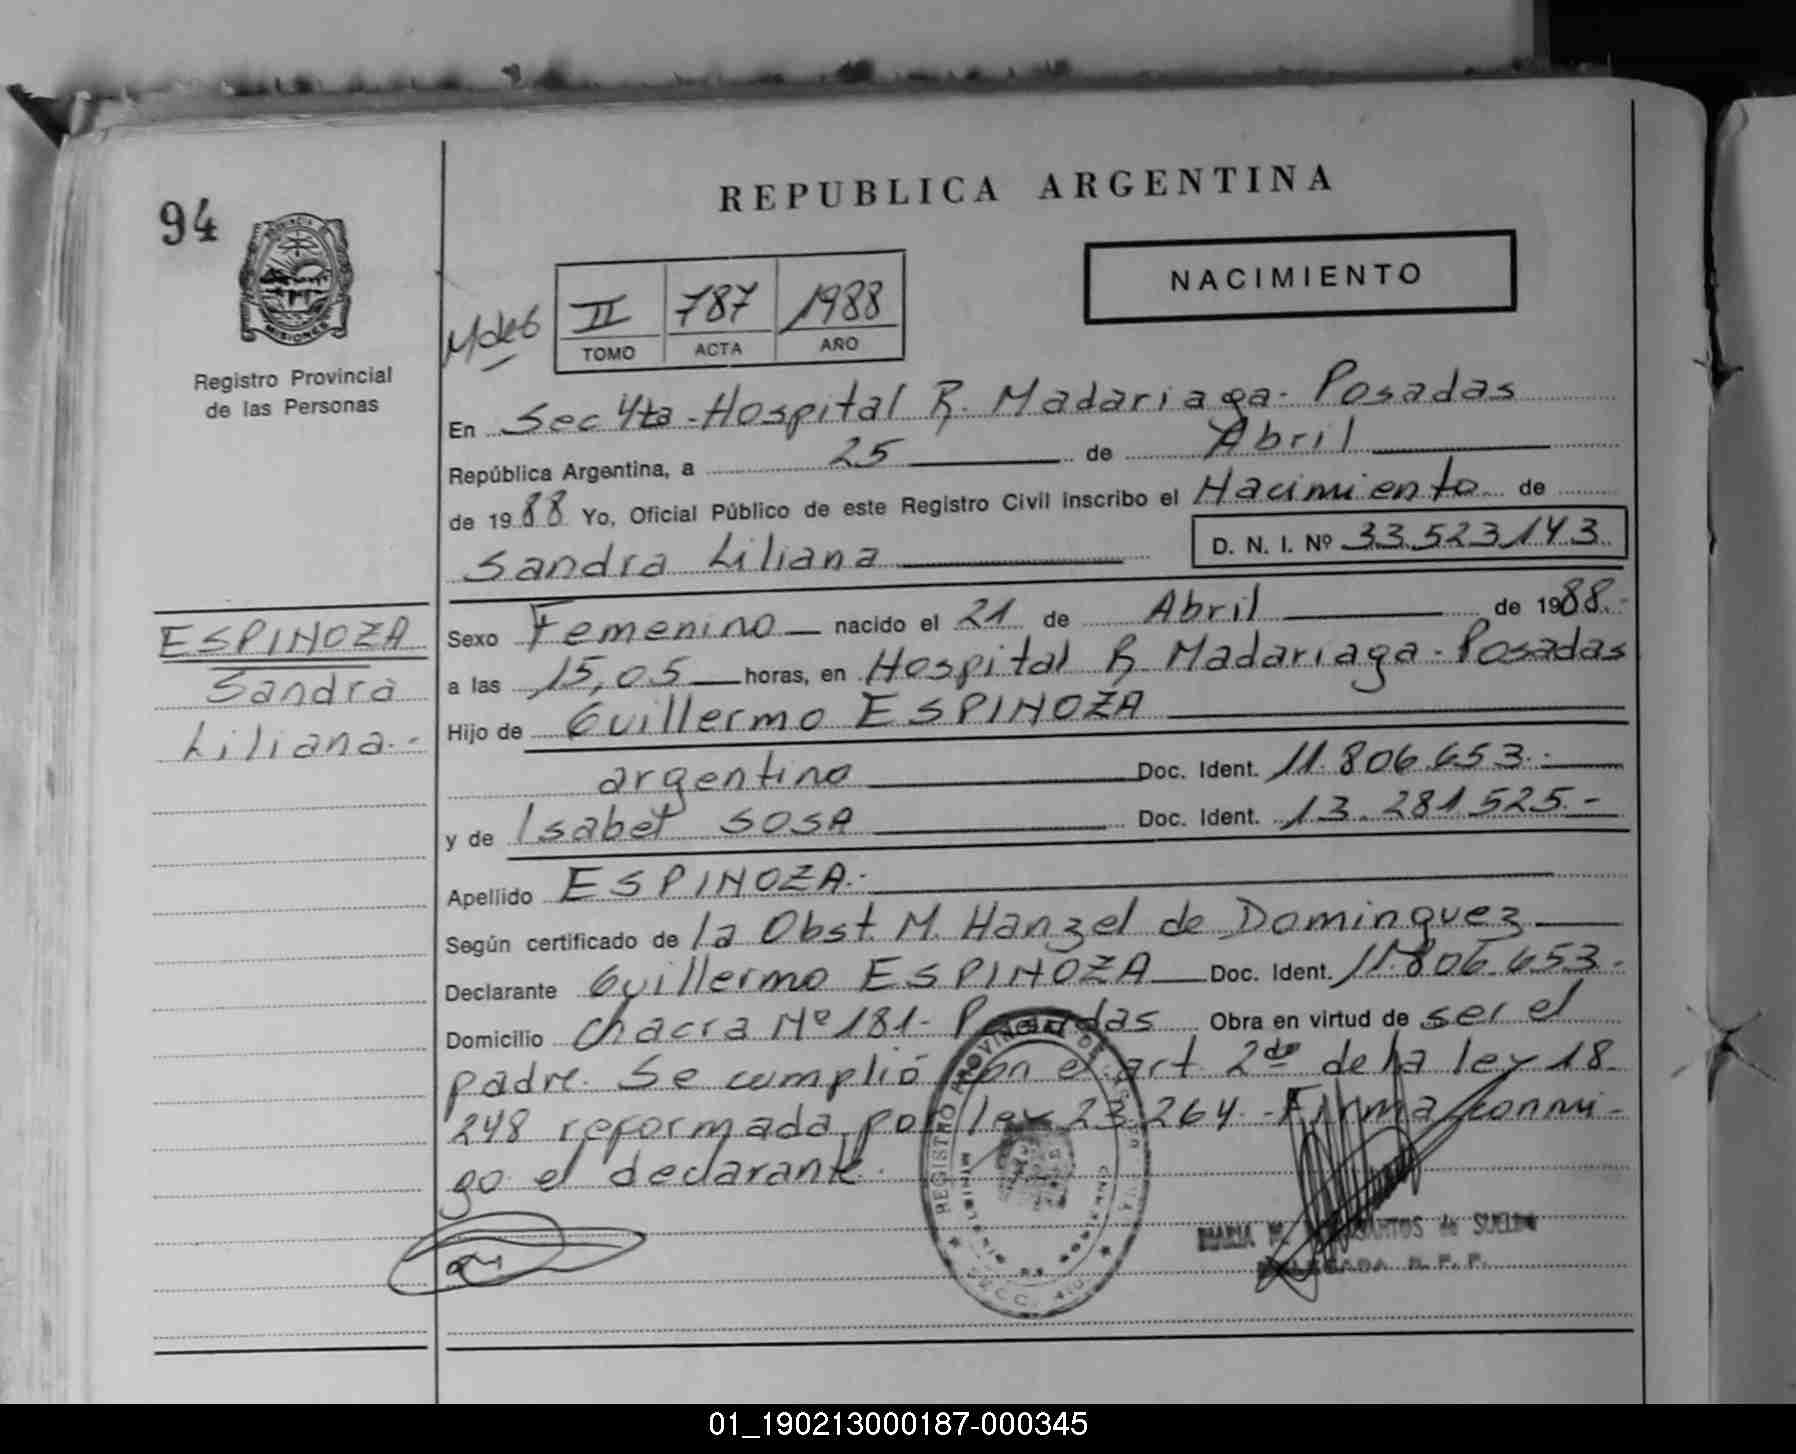 REPUBLICA ARGENTINA
94
NACIMIENTO
II 787 1988
TOMO ACTA AÑO
Registro Provincial
de las Personas
MISIONES
En Sec 4ta - Hospital R. Madariaga - Posadas
República Argentina, a 25 de Abril
de 1988 Yo, Oficial Público de este Registro Civil inscribo el Nacimiento de
Sandra Liliana D. N. I. Nº 33.523.143
ESPINOZA
Sandra
Liliana.-
Sexo Femenino nacido el 21 de Abril de 1988.-
a las 15,05 horas, en Hospital R. Madariaga - Posadas
Hijo de Guillermo ESPINOZA
argentino Doc. Ident. 11.806.653.-
y de Isabel SOSA Doc. Ident. 13.281.525.-
Apellido ESPINOZA.-
Según certificado de la Obst. M. Hanzel de Dominguez
Declarante Guillermo ESPINOZA Doc. Ident. 11.806.653.-
Domicilio Chacra Nº 181 - Posadas Obra en virtud de ser el
padre. Se cumplió con el art. 2do de la ley 18.
248 reformada por ley 23.264.- Firma conmi-
go el declarante.
REGISTRO PROVINCIAL DE
MINISTERIO
01_190213000187-000345